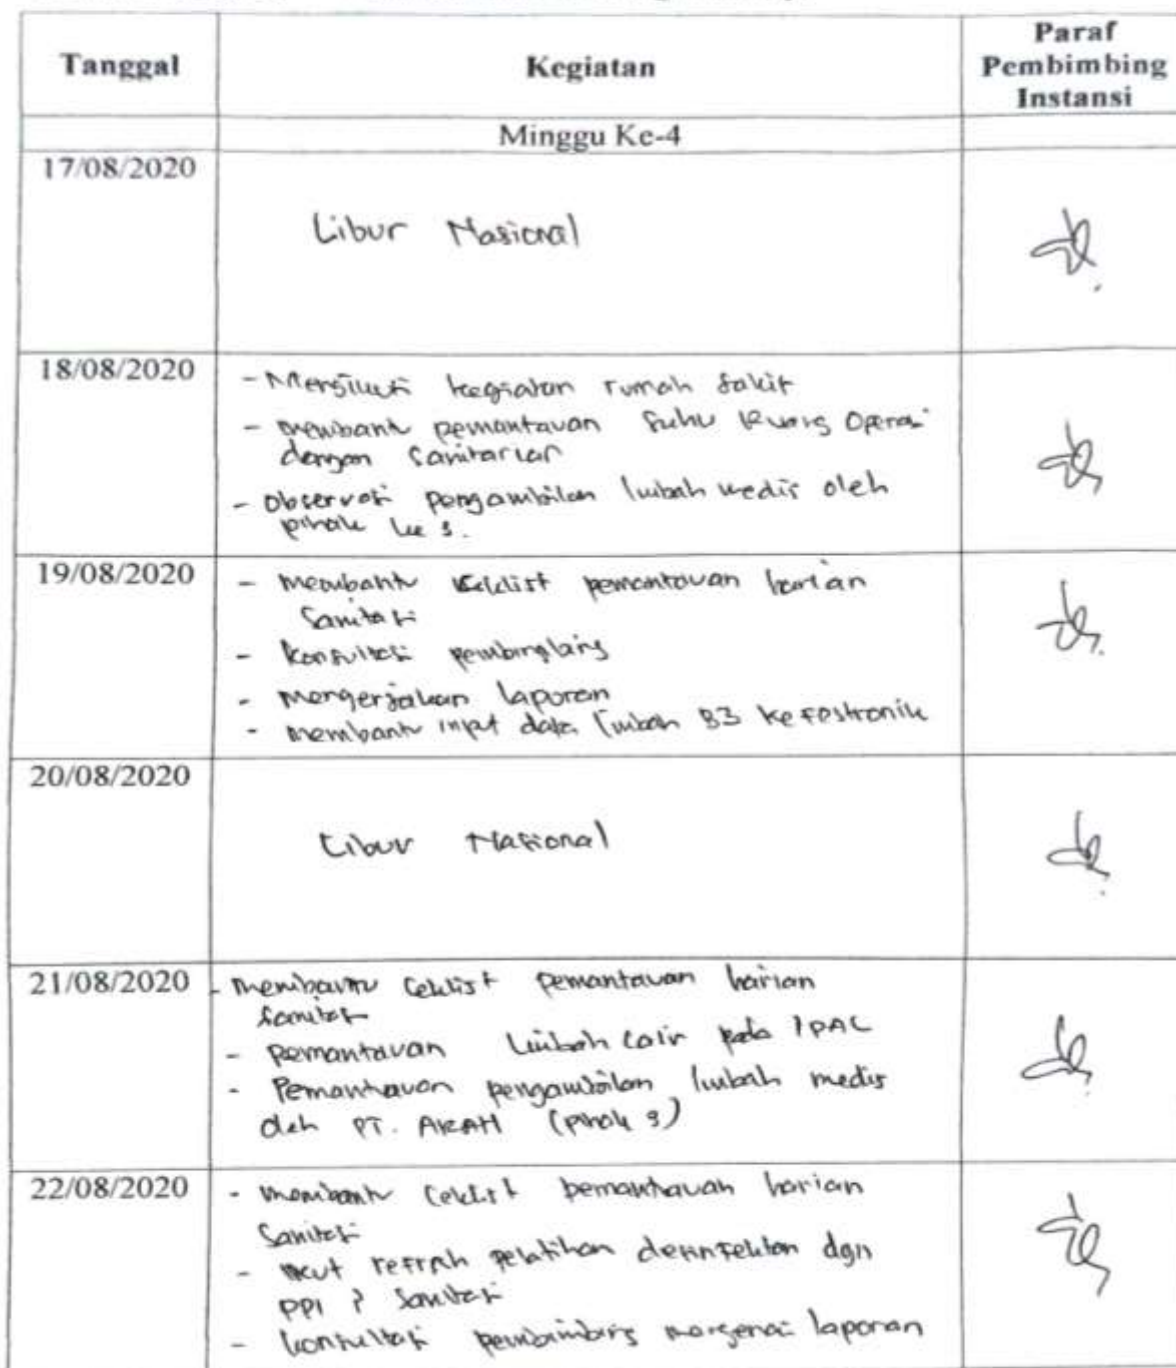 Tanggal
Kegiatan
Paraf
Pembimbing
Instansi
Minggu Ke-4
17/08/2020
Libur Nasional
18/08/2020
- Mengikuti kegiatan rumah sakit
- membantu pemantauan suhu Ruang Operasi
dengan Sanitarian
- Observasi pengambilan limbah medis oleh
pihak ke 3.
19/08/2020
- membantu ceklist pemantauan harian
Sanitasi
- konsultasi pembimbing
- mengerjakan laporan
- membantu input data limbah B3 ke Festronik
20/08/2020
Libur Nasional
21/08/2020
- membantu Ceklist pemantauan harian
Sanitasi
- pemantauan limbah cair pada IPAL
- Pemantauan pengambilan limbah medis
oleh PT. ARAH (pihak 3)
22/08/2020
- membantu Ceklist pemantauan harian
Sanitasi
- ikut pelatihan desinfektan dgn
PPI & Sanitasi
- konsultasi pembimbing mengenai laporan